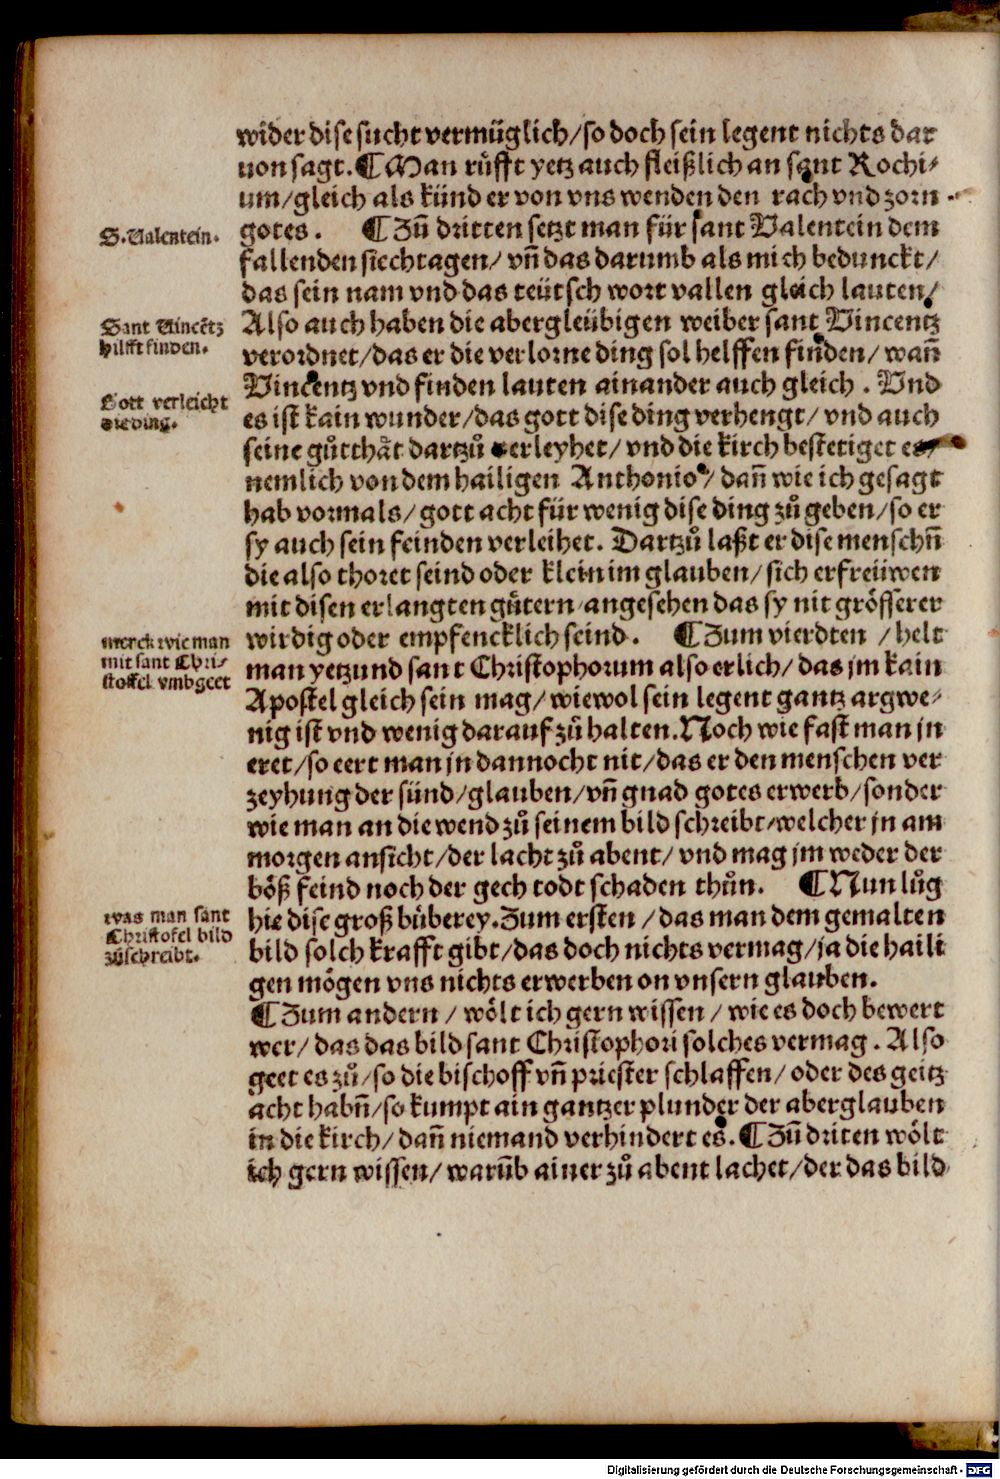 wider dise sucht vermüglich/so doch sein legent nichts dar
uon sagt. ¶ Man rüfft yetz auch fleißlich an sant Rochi⸗
um/gleich als künd er von vns wenden den rach vnd zorn
S. Ualentein.
gotes. ¶ Zū dritten setzt man für sant Valentein dem
fallenden siechtagen/ vn̄ das darumb als mich bedunckt/
das sein nam vnd das teütsch wort vallen gleich lauten/
Sant Uincētz
hilfft finden.
Also auch haben die abergleübigen weiber sant Vincentz
verordnet/das er die verlorne ding sol helffen finden/ wan̄
Vincentz vnd finden lauten ainander auch gleich. Vnd
Gott verleicht
die ding.
es ist kain wunder/das gott dise ding verhengt/ vnd auch
seine gůtthåt dartzů verleyhet/ vnd die kirch bestetiget es/
nemlich von dem hailigen Anthonio/ dan̄ wie ich gesagt
hab vormals/ gott acht für wenig dise ding zů geben/so er
sy auch sein feinden verleihet. Dartzů laßt er dise menschn̄
die also thoret seind oder klein im glauben/ sich erfreüwen
mit disen erlangten gütern angesehen das sy nit grösserer
merck wie man
mit sant Chri⸗
stoffel vmbgeet
wirdig oder empfencklich seind. ¶ Zum vierdten / helt
man yetzund sant Christophorum also erlich/ das jm kain
Apostel gleich sein mag/ wiewol sein legent gantz argwe⸗
nig ist vnd wenig darauf zů halten. Noch wie fast man jn
eret/so eert man jn dannocht nit/das er den menschen ver
zeyhung der sünd/glauben/vn̄ gnad gotes erwerb/sonder
wie man an die wend zů seinem bild schreibt/welcher jn am
morgen ansicht/der lacht zů abent/ vnd mag jm weder der
böß feind noch der gech todt schaden thůn. ¶ Nun lůg
was man sant
Christofel bild
zůschreibt.
hie dise groß büberey. Zum ersten / das man dem gemalten
bild solch krafft gibt/das doch nichts vermag/ja die haili
gen mögen vns nichts erwerben on vnsern glauben.
¶ Zum andern / wölt ich gern wissen / wie es doch bewert
wer/ das das bild sant Christophori solches vermag. Also
geet es zů/so die bischoff vn̄ priester schlaffen/ oder des geitz
acht habn̄/so kumpt ain gantzer plunder der aberglauben
in die kirch/ dan̄ niemand verhindert es. ¶ Zū driten wölt
ich gern wissen/ warūb ainer zů abent lachet/der das bild
Digitalisierung gefördert durch die Deutsche Forschungsgemeinschaft - DFG